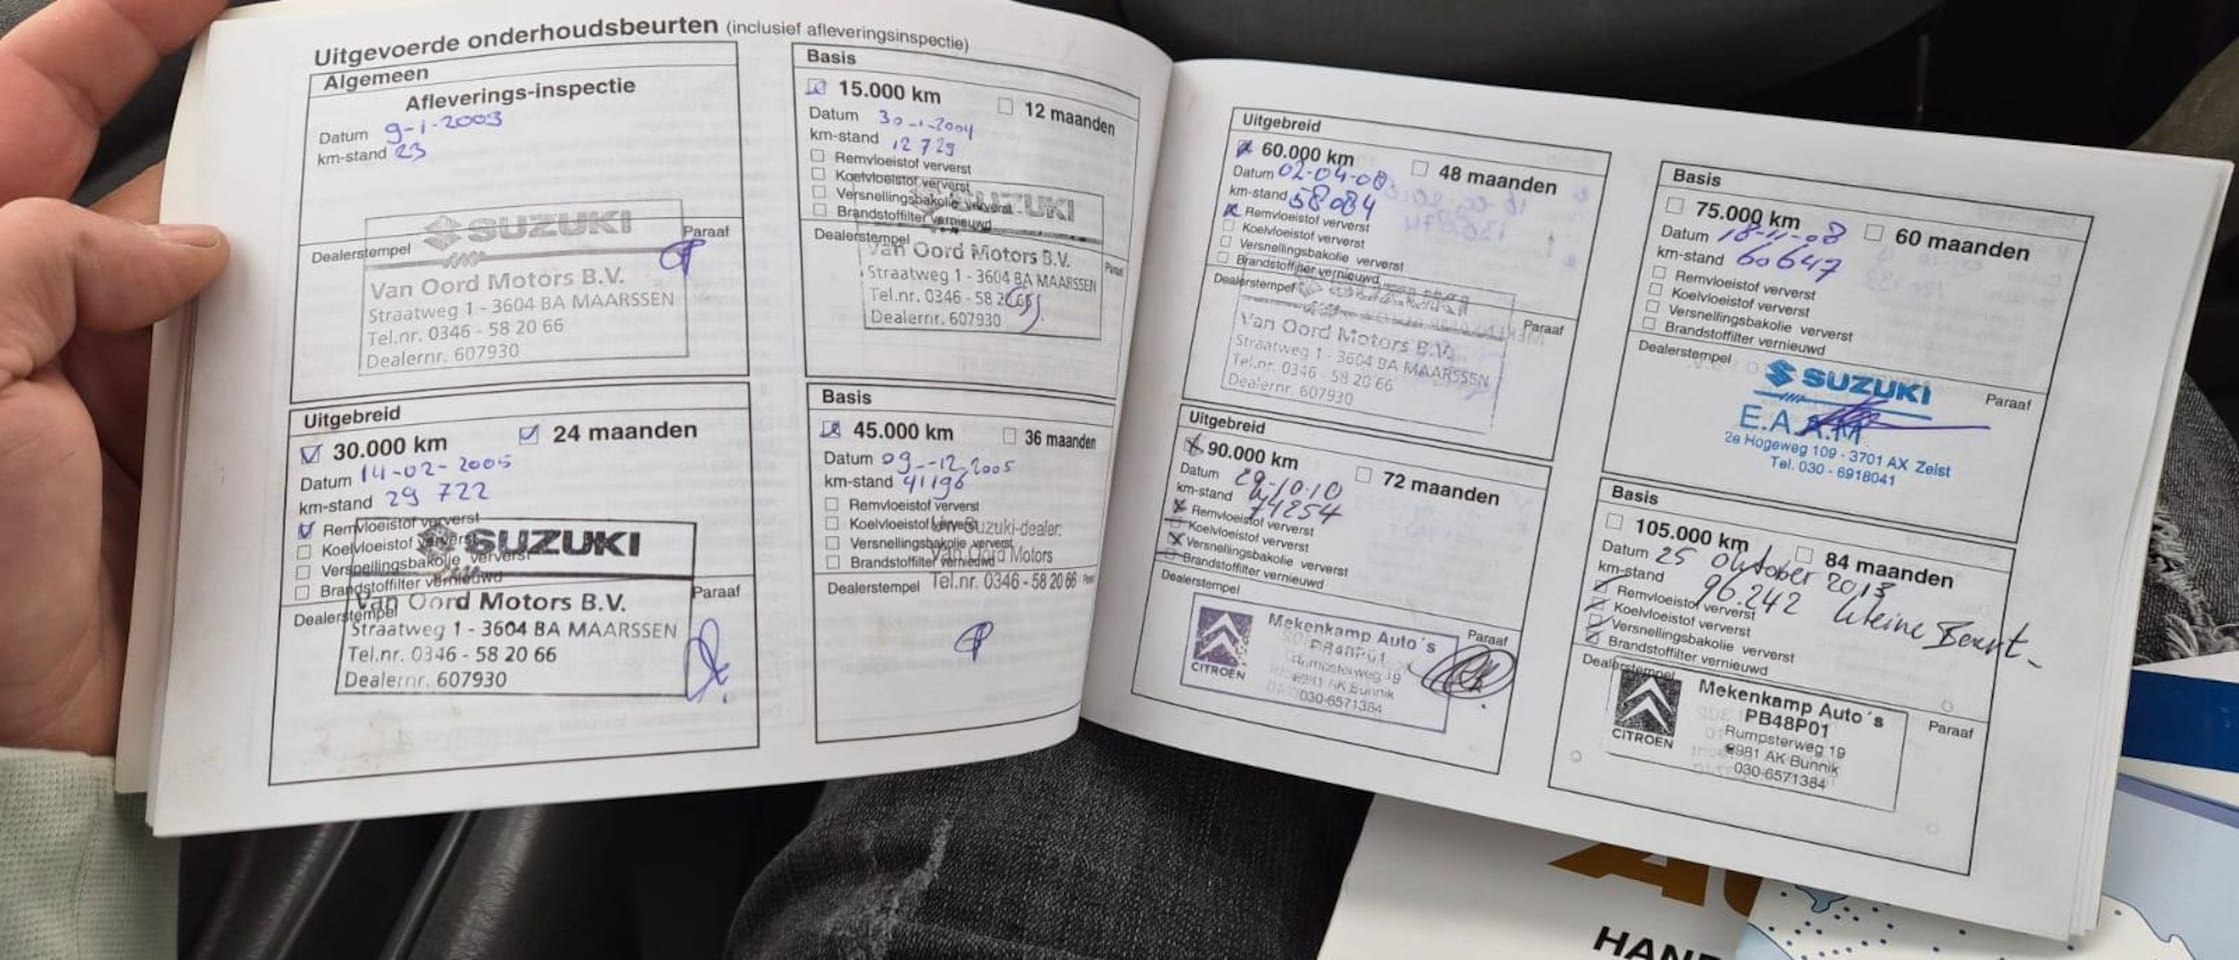 Uitgevoerde onderhoudsbeurten (inclusief afleveringsinspectie)
Algemeen
Afleverings-inspectie
Datum 9-1-2003
km-stand 23
Dealerstempel
Paraaf
SUZUKI
Van Oord Motors B.V.
Straatweg 1 - 3604 BA MAARSSEN
Tel.nr. 0346 - 58 20 66
Dealernr. 607930
Basis
15.000 km
12 maanden
Datum 30-1-2004
km-stand 12729
Remvloeistof ververst
Koelvloeistof ververst
Versnellingsbakolie ververst
Brandstoffilter vernieuwd
SUZUKI
Dealerstempel
Van Oord Motors B.V.
Straatweg 1 - 3604 BA MAARSSEN
Tel.nr. 0346 - 58 20 66
Dealernr. 607930
Uitgebreid
30.000 km
24 maanden
Datum 14-02-2005
km-stand 29 722
Remvloeistof ververst
Koelvloeistof ververst
Versnellingsbakolie ververst
Brandstoffilter vernieuwd
SUZUKI
Dealerstempel
Paraaf
Van Oord Motors B.V.
Straatweg 1 - 3604 BA MAARSSEN
Tel.nr. 0346 - 58 20 66
Dealernr. 607930
Basis
45.000 km
36 maanden
Datum 09-12-2005
km-stand 41196
Remvloeistof ververst
Koelvloeistof ververst
Versnellingsbakolie ververst
Brandstoffilter vernieuwd
Uw Suzuki-dealer:
Van Oord Motors
Tel.nr. 0346 - 58 20 66
Dealerstempel
Uitgebreid
60.000 km
48 maanden
Datum 02-04-08
km-stand 58084
Remvloeistof ververst
Koelvloeistof ververst
Versnellingsbakolie ververst
Brandstoffilter vernieuwd
Dealerstempel
Paraaf
Van Oord Motors B.V.
Straatweg 1 - 3604 BA MAARSSEN
Tel.nr. 0346 - 58 20 66
Dealernr. 607930
Basis
75.000 km
60 maanden
Datum 18-11-08
km-stand 60647
Remvloeistof ververst
Koelvloeistof ververst
Versnellingsbakolie ververst
Brandstoffilter vernieuwd
Dealerstempel
Paraaf
SUZUKI
E.A.A.M.
2e Hogeweg 109 - 3701 AX Zeist
Tel. 030 - 6918041
Uitgebreid
90.000 km
72 maanden
Datum 29-10-10
km-stand 74254
Remvloeistof ververst
Koelvloeistof ververst
Versnellingsbakolie ververst
Brandstoffilter vernieuwd
Dealerstempel
Paraaf
CITROEN
Mekenkamp Auto´s
PB48P01
Rumpsterweg 19
3981 AK Bunnik
030-6571384
Basis
105.000 km
84 maanden
Datum 25 Oktober 2013
km-stand 96.242 kleine Beurt
Remvloeistof ververst
Koelvloeistof ververst
Versnellingsbakolie ververst
Brandstoffilter vernieuwd
Dealerstempel
Paraaf
CITROEN
Mekenkamp Auto´s
PB48P01
Rumpsterweg 19
3981 AK Bunnik
030-6571384